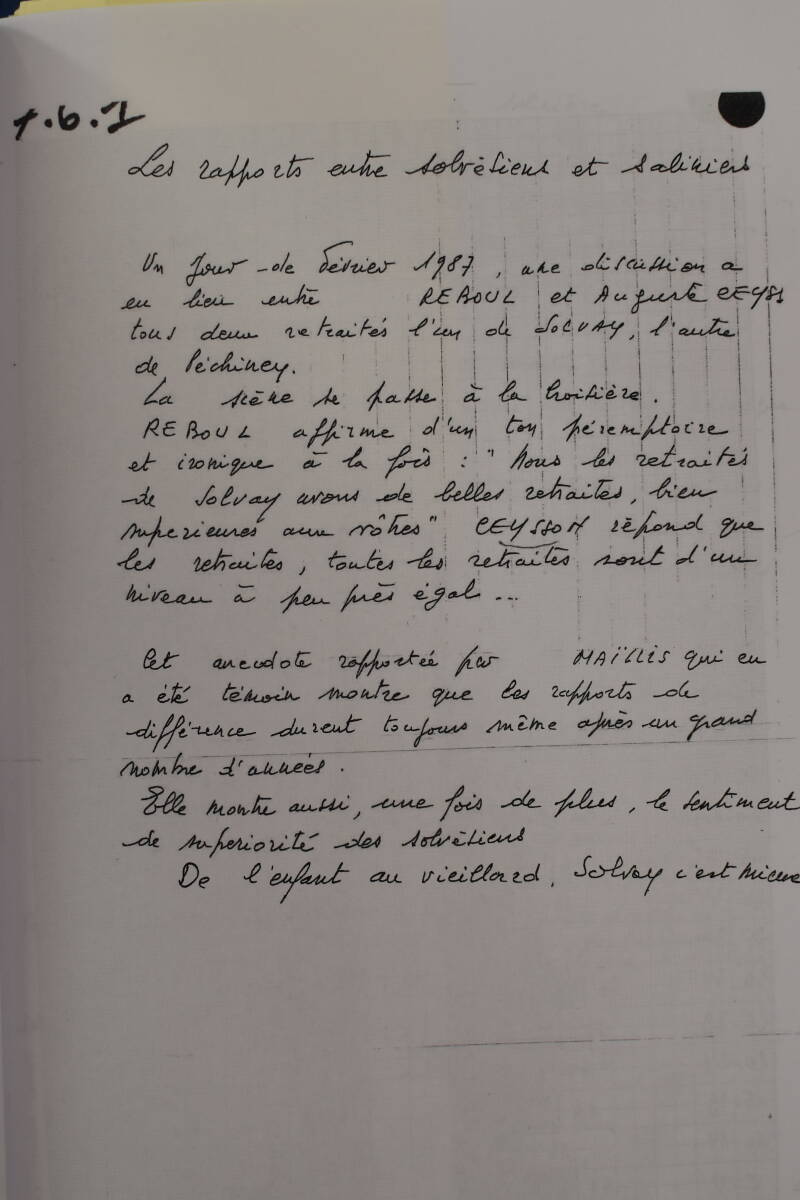 1.6.1
Les rapports entre solvésiens et saliniers
Un jour de février 1987, une discussion a
eu lieu entre REBOUL et Auguste CEYSS
tous deux retraités l'un de SOLVAY, l'autre
de Péchiney.
La scène se passe à la
REBOUL affirme d'un ton péremptoire
et ironique à la fois : "Nous les retraités
de Solvay avons de belles retraites, bien
superieures aux vôtres" CEYSSON répond que
les retraites, toutes les retraites sont d'un
niveau à peu près égal ...
Cet anecdote rapportée par MAÏLLIS qui en
a été témoin montre que les rapports de
différence durent toujours même après un grand
nombre d'années.
Elle montre aussi, une fois de plus, le sentiment
de superiorité des solvésiens
De l'enfant au vieillard, Solvay c'est mieux